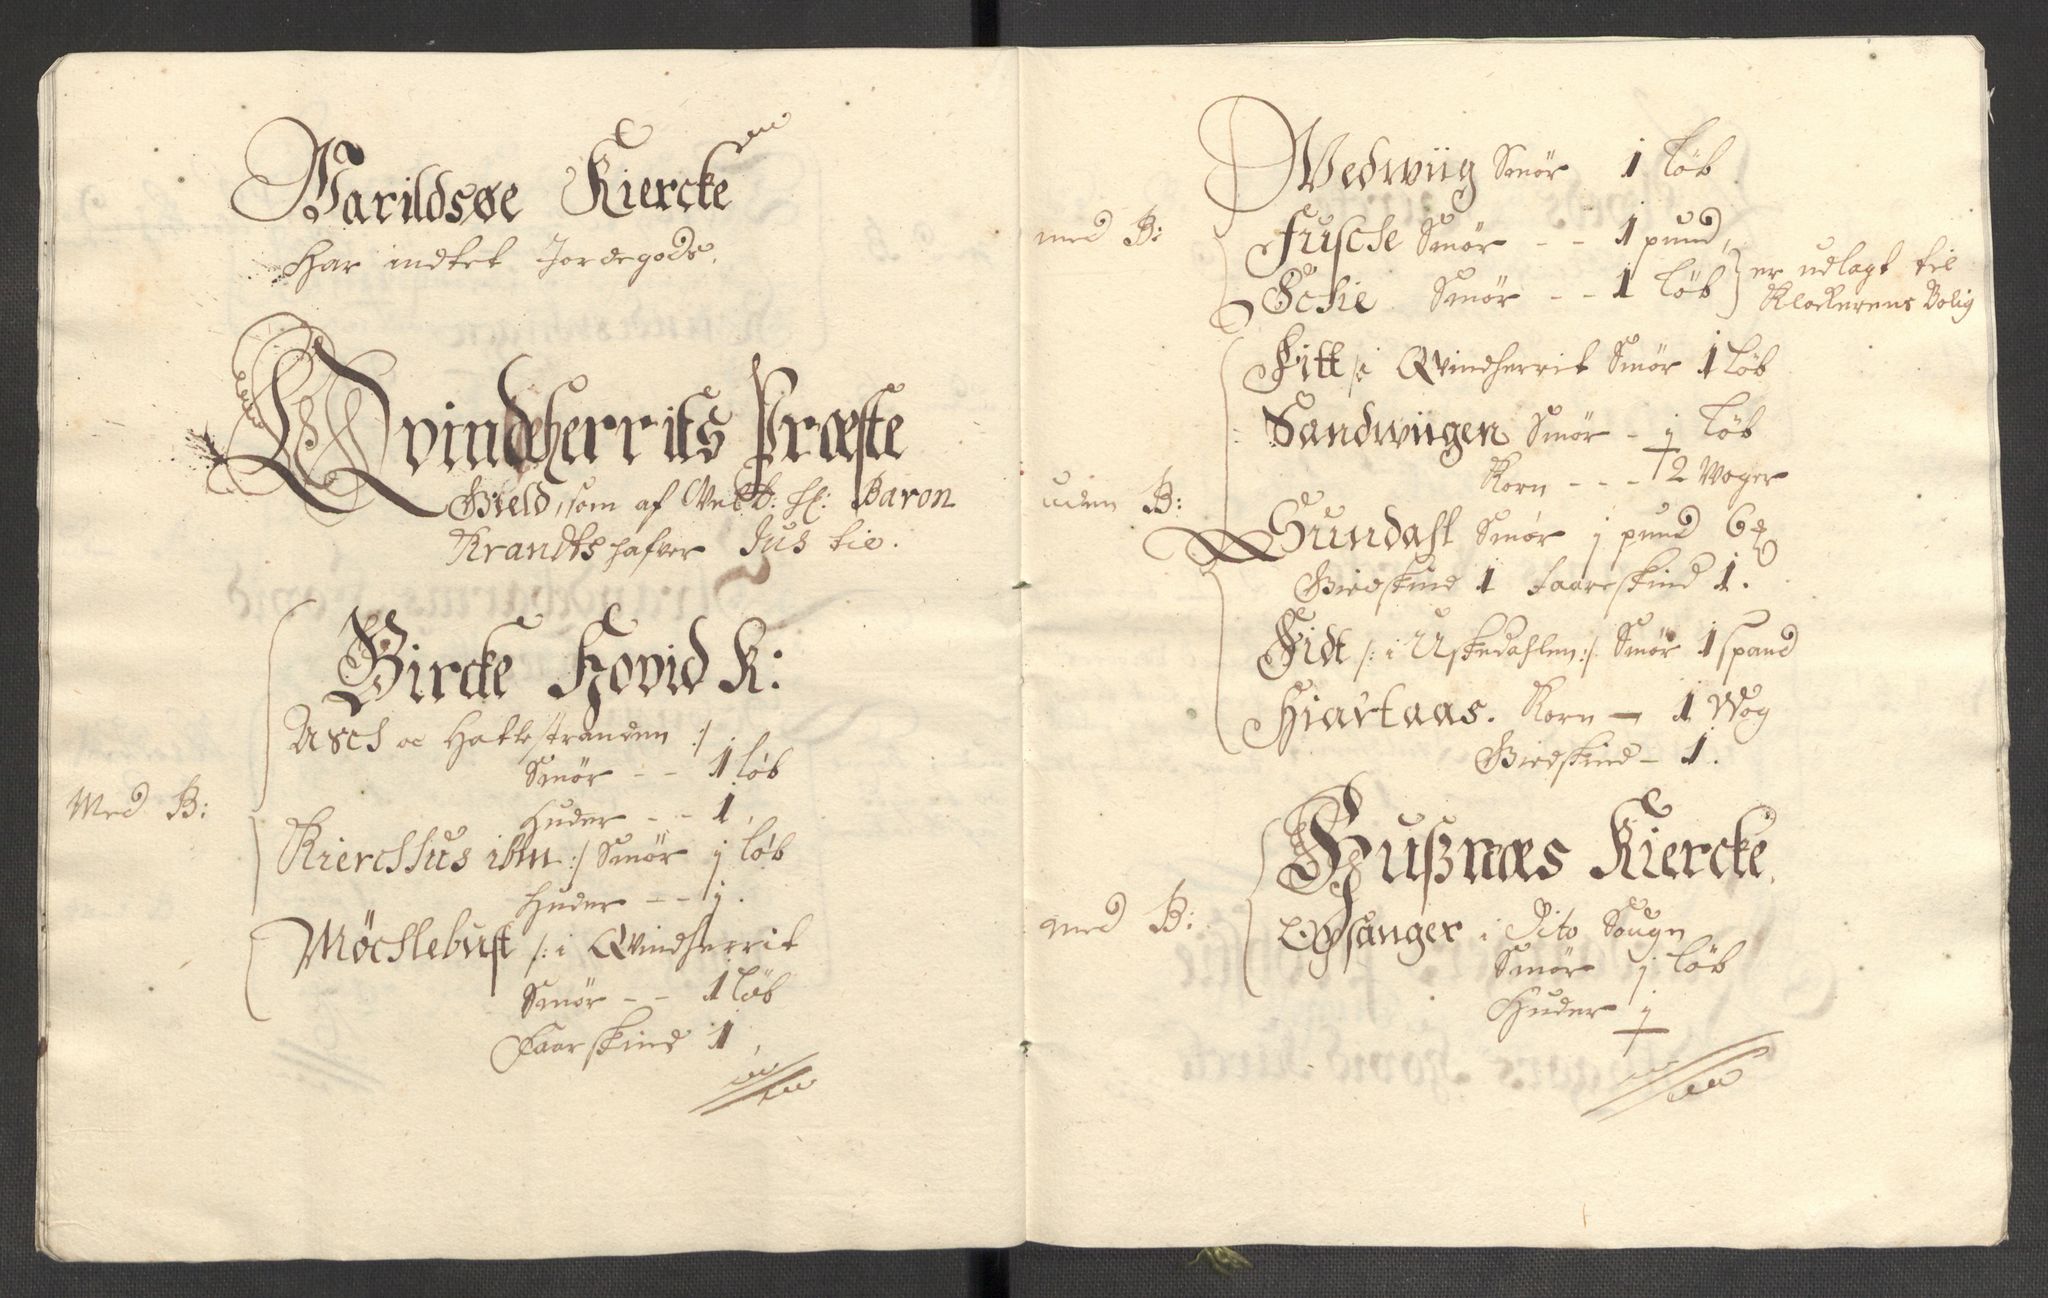 Varildsøe Kiercke
Har indtet Jordegods.
Qvindeherrits Præste
Gield, som af Velb: H: Baron
Krandts hafver Jus til.
Bircke Hovid K:
Usch oc Hattestranden :/
Smør - - 1 løb
Med B:
Huder - - 1.
Kierchhus ibm :/ Smør j løb
Huder - - j.
Møchlebust /: i Qvindherrit
Smør - - 1 løb
Faarskind 1.
Wedwiig Smør 1 Løb
med B:
Fusche Smør - - 1 pund,
Echie Smør - - 1 Løb
er udlagt til
Klockerens Bolig
Fitt /: i Qvindherrit Smør 1 Løb
Sandwiigen Smør - j Løb
Korn - - - 2 Woger
uden B:
Sundahl Smør j pund 6
Giedskind 1 faareskind 1.
Fidt /: i Uskedahlen :/ Smør 1 spand
Hiartaas. Korn - 1 Wog
Giedskind - 1.
Hußnæs Kiercke
med B:
Opsanger i Dito Sougn
Smør j Løb
Huder j